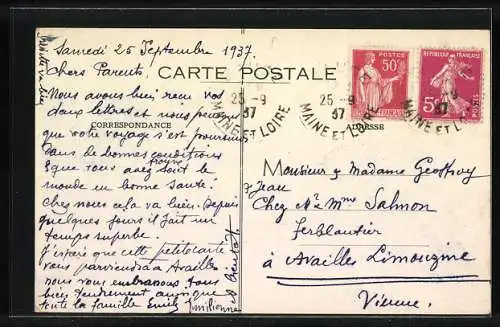 Samedi 25 Septembre 1937.
Chers Parents
CARTE POSTALE
Nous avons bien reçu vos
deux lettres et nous pensons
CORRESPONDANCE
que votre voyage s'est poursuivi
dans de bonnes conditions
&que vous avez trouvé tout le
monde en bonne santé.
Chez nous cela va bien. Depuis
quelques jours il fait un
temps superbe.
J'espère que cette petite carte
vous parviendra à Availles
nous vous embrassons tous
bien tendrement ainsi que
toute la famille Emile
et bientôt
POSTES
50c
RÉPUBLIQUE FRANÇAISE
POSTES
25-9
37
MAINE ET LOIRE
25-9
37
MAINE ET LOIRE
37
MAINE ET L
ADRESSE
Monsieur & Madame Geoffroy
& Jean
Chez Mr & Mme Salmon
Ferblantier
à Availles Limouzine
Vienne.